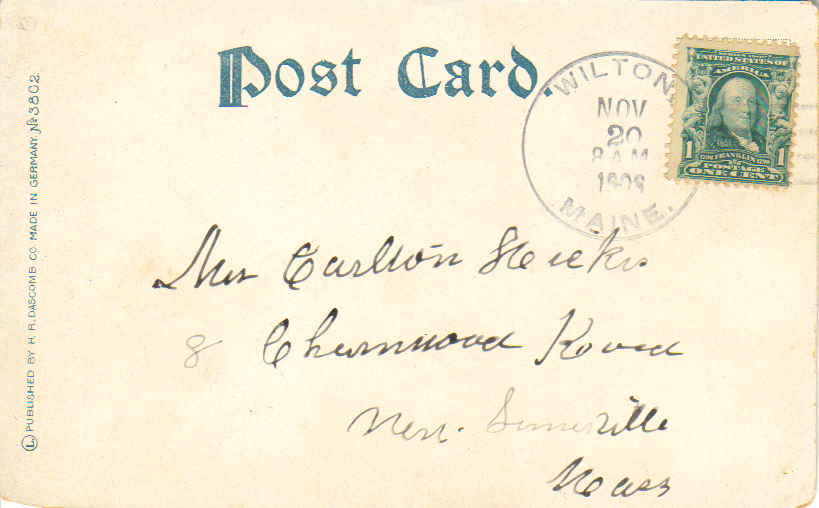 Post Card.
WILTON,
NOV
20
8 AM
MAINE.
UNITED STATES OF
AMERICA
1 1
FRANKLIN
POSTAGE
ONE CENT
Mrs Carlton Hicks
8 Charnwood Road
West Somerville
Mass
PUBLISHED BY H. R. DASCOMB CO. MADE IN GERMANY. No 3802.